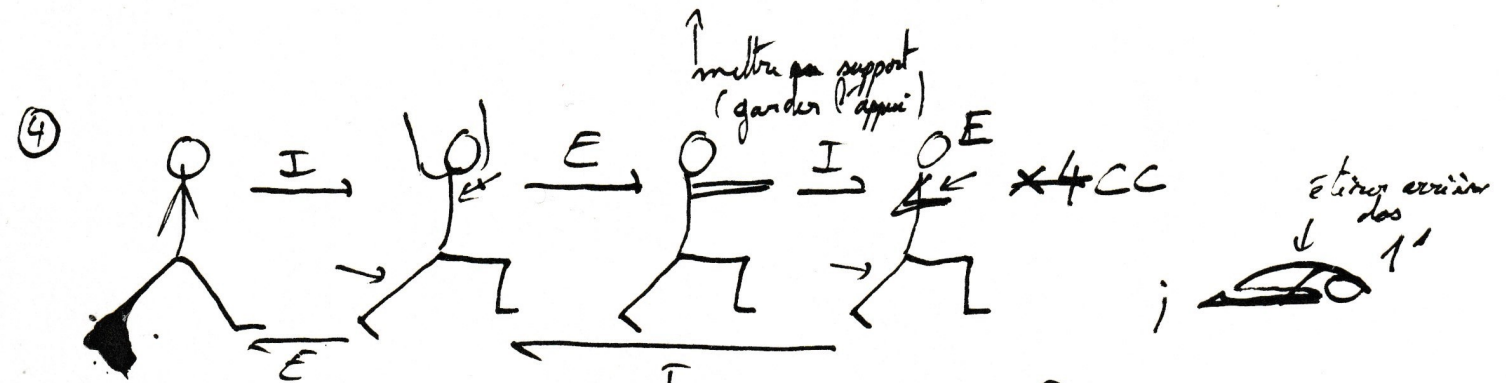 mettre support
(garder l'appui)
④ I E I E ×4 CC
étirer arrière
dos
1"
;
E I